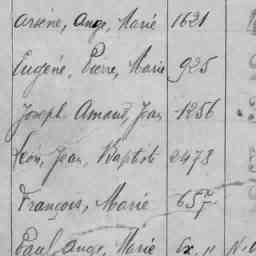 Arsène, Ange, Marie 1621
Eugène, Pierre, Marie 925
Joseph Amand, Jean 1256
Léon, Jean, Baptiste 2478
François, Marie 657
Paul, Ange, Marie Ex. 11